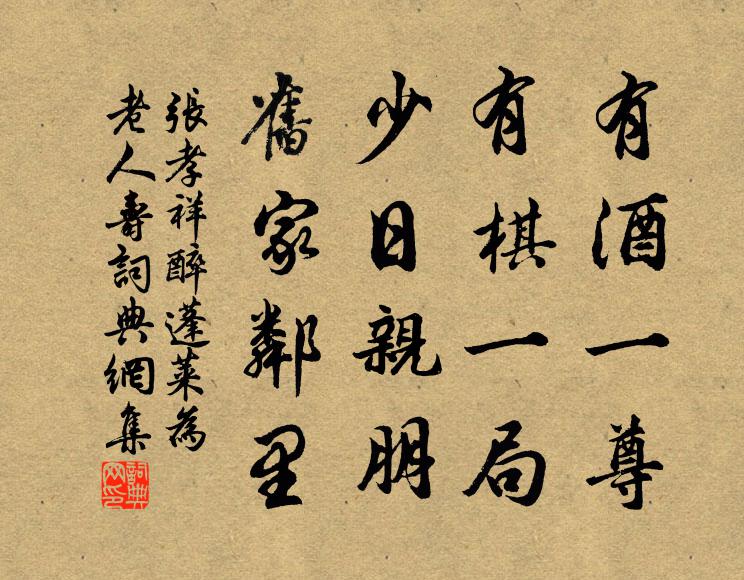 有酒一尊
有棋一局
少日親朋
舊家鄰里
張孝祥醉蓬萊為
老人壽詞典網集
詞典網印